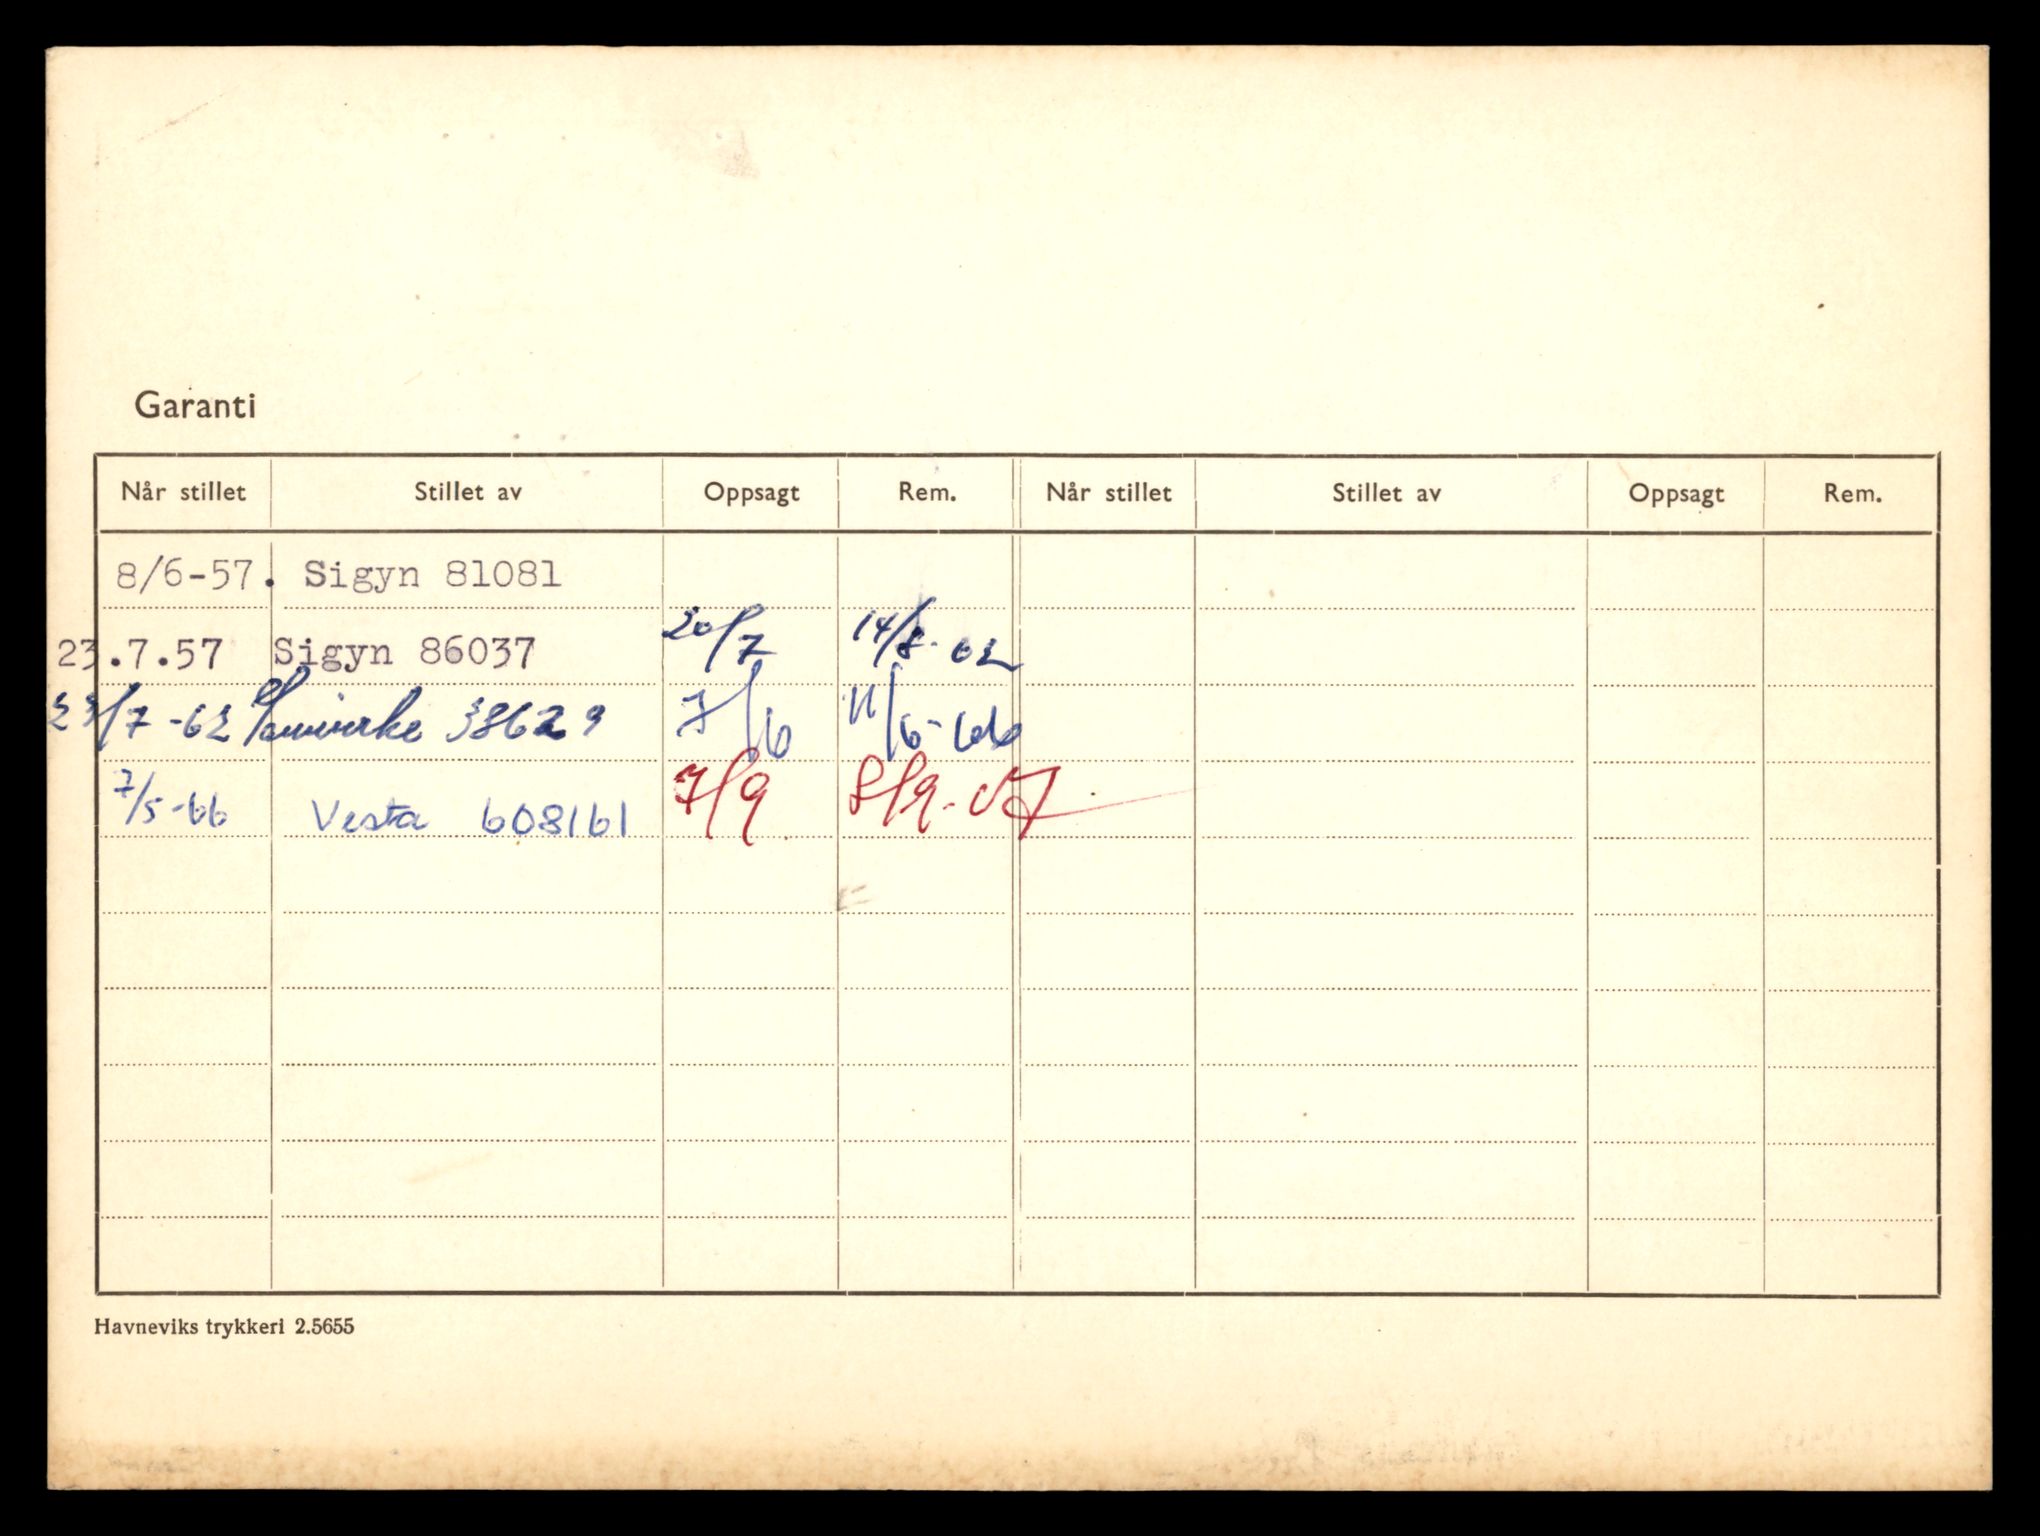 Garanti
Når stillet Stillet av Oppsagt Rem. Når stillet Stillet av Oppsagt Rem.
8/6-57. Sigyn 81081
23.7.57 Sigyn 86037 20/7 14/8-62
23/7-62 Samvirke 38629 7/6 11/6-66
7/5-66 Vesta 608161 7/9. 8/9-67
Havneviks trykkeri 2.5655